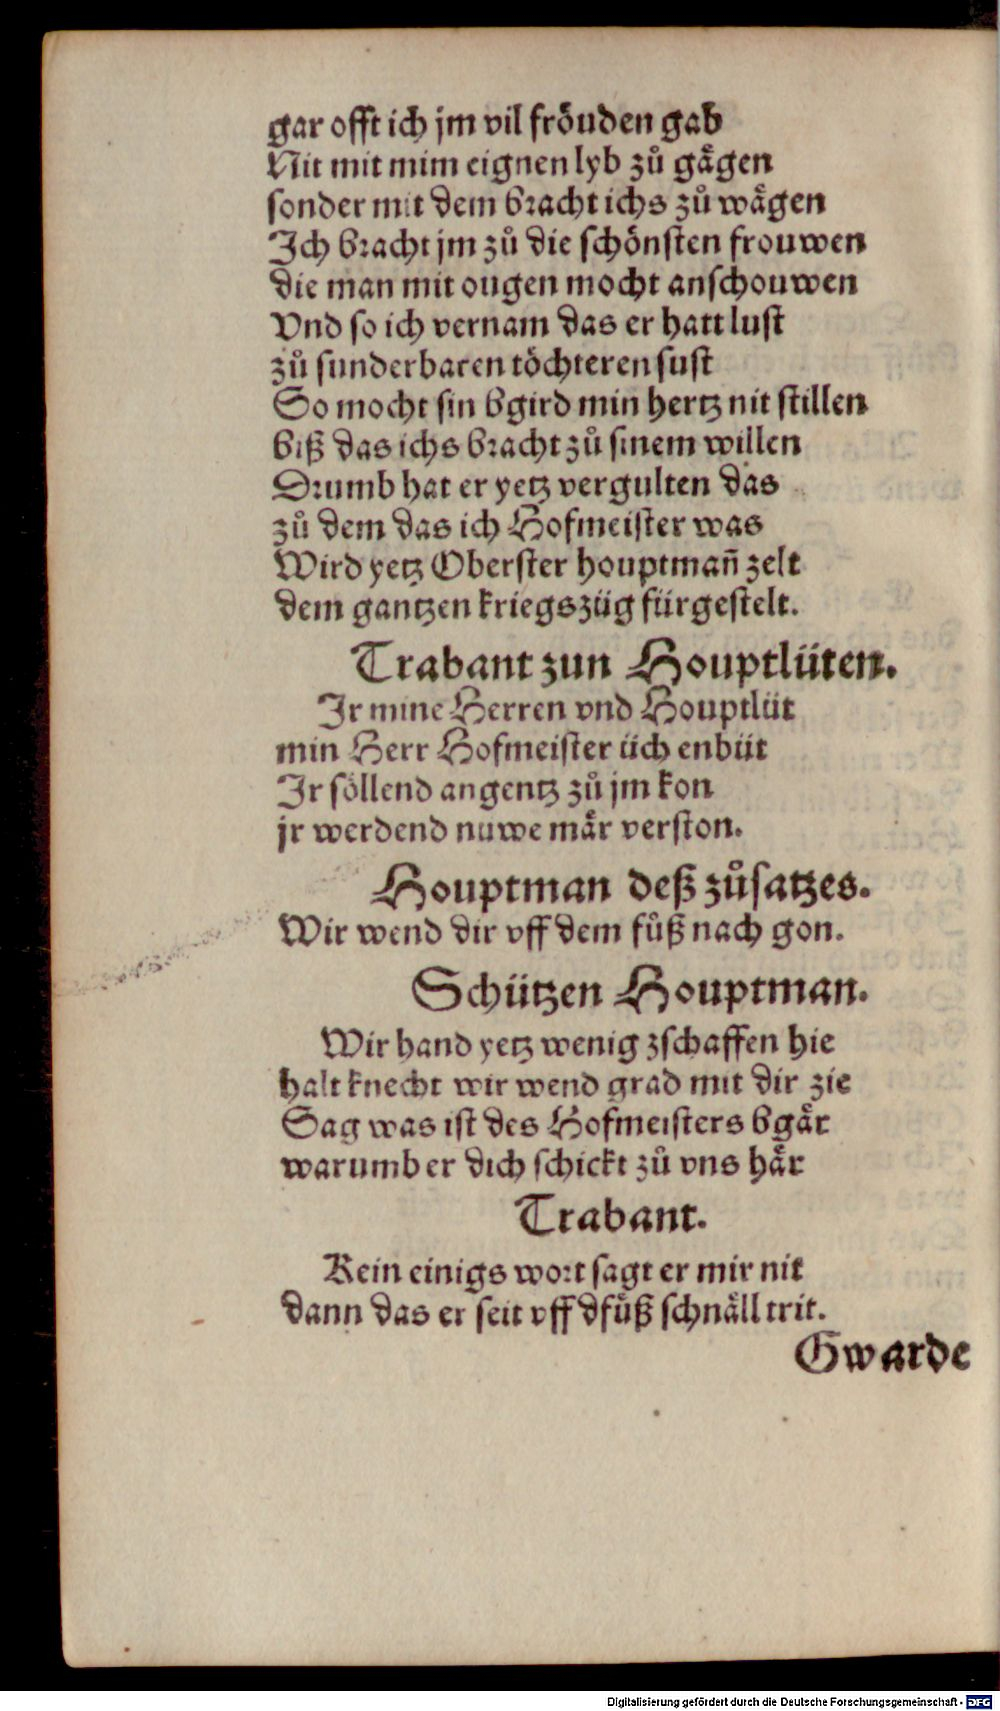 gar offt ich jm vil fröuden gab
Nit mit mim eignen lyb zů gägen
sonder mit dem bracht ichs zů wägen
Ich bracht jm zů die schönsten frouwen
die man mit ougen mocht anschouwen
Vnd so ich vernam das er hatt lust
zů sunderbaren töchteren sust
So mocht sin bgird min hertz nit stillen
biß das ichs bracht zů sinem willen
Drumb hat er yetz vergulten das
zů dem das ich Hofmeister was
Wird yetz Oberster houptmañ zelt
dem gantzen kriegszüg fürgestelt.
Trabant zun Houptlüten.
Ir mine Herren vnd Houptlüt
min Herr Hofmeister üch enbüt
Ir söllend angentz zů jm kon
jr werdend nuwe mär verston.
Houptman deß zůsatzes.
Wir wend dir vff dem fůß nach gon.
Schützen Houptman.
Wir hand yetz wenig zschaffen hie
halt knecht wir wend grad mit dir zie
Sag was ist des Hofmeisters bgär
warumb er dich schickt zů vns här
Trabant.
Kein einigs wort sagt er mir nit
dann das er seit vff dfůß schnäll trit.
Gwarde
Digitalisierung gefördert durch die Deutsche Forschungsgemeinschaft - DFG